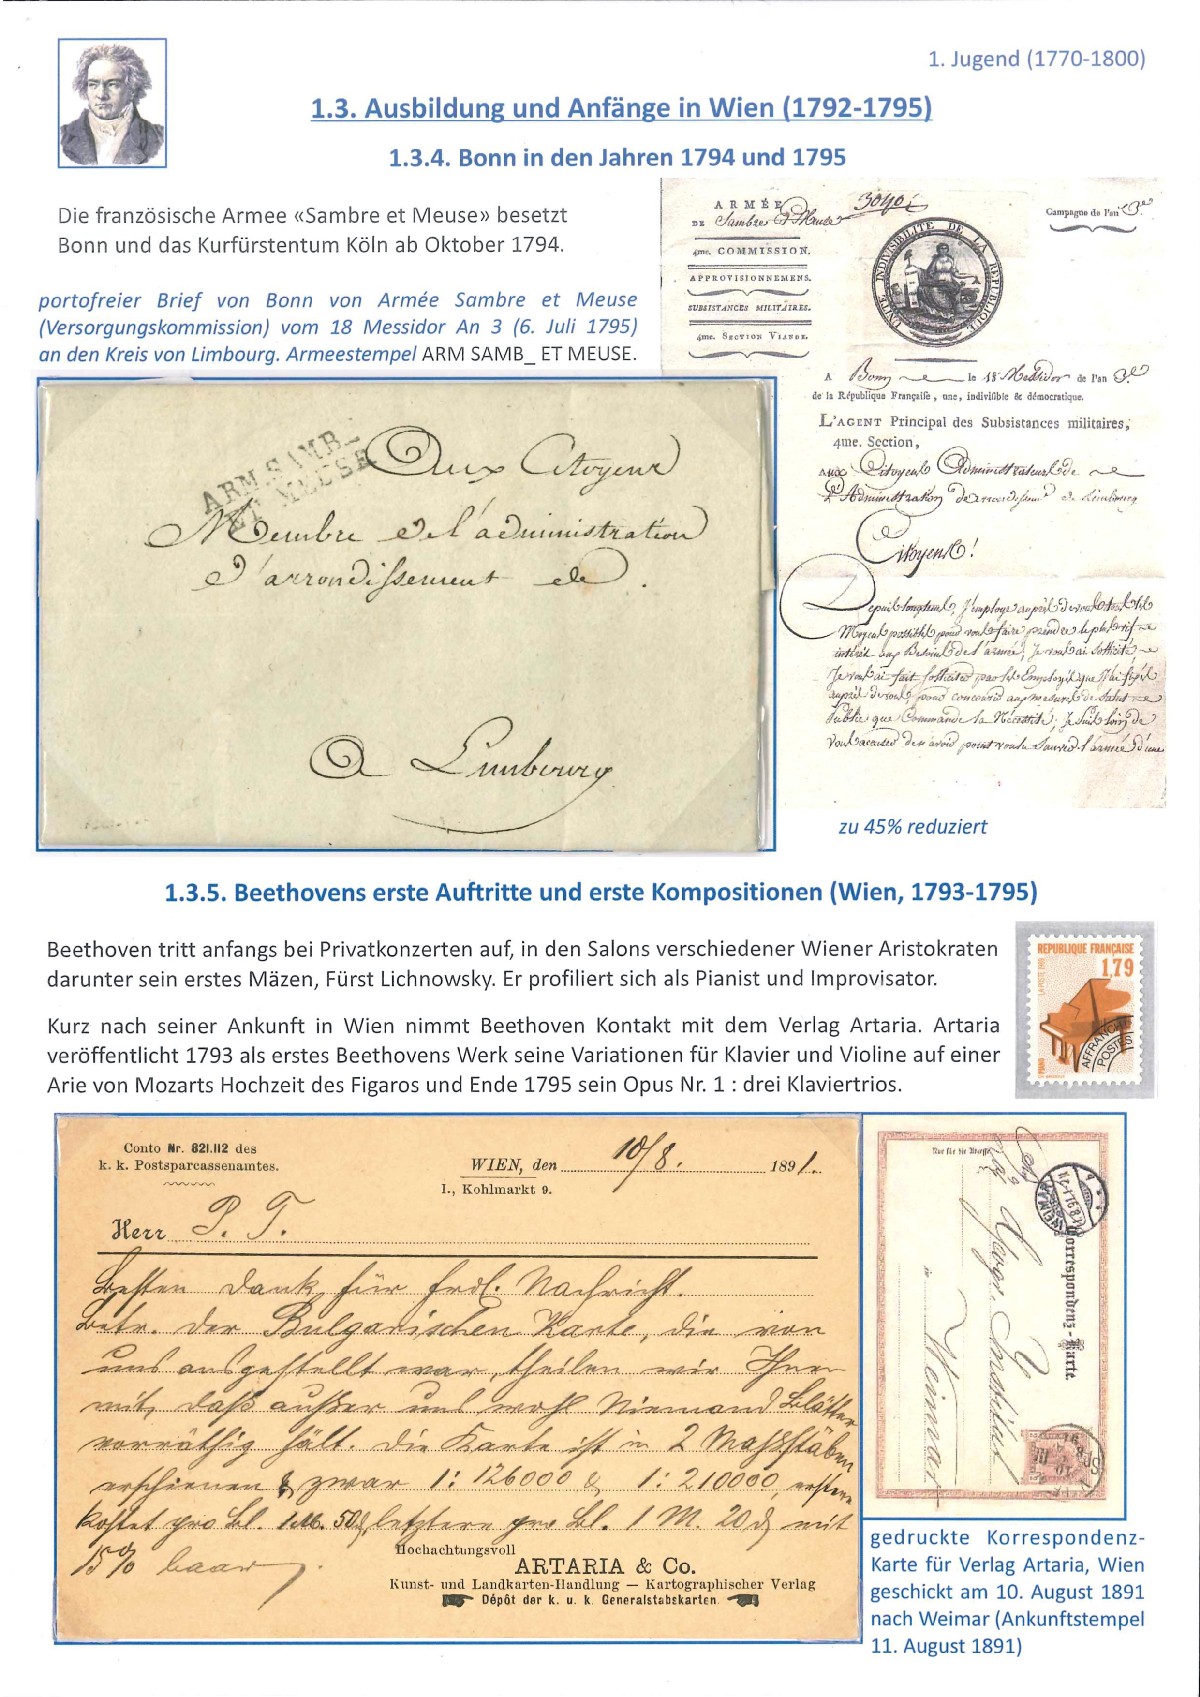 1. Jugend (1770-1800)
1.3. Ausbildung und Anfänge in Wien (1792-1795)
1.3.4. Bonn in den Jahren 1794 und 1795
Die französische Armee «Sambre et Meuse» besetzt
Bonn und das Kurfürstentum Köln ab Oktober 1794.
portofreier Brief von Bonn von Armée Sambre et Meuse
(Versorgungskommission) vom 18 Messidor An 3 (6. Juli 1795)
an den Kreis von Limbourg. Armeestempel ARM SAMB_ ET MEUSE.
ARMÉE
DE Sambre & Meuse
4me. COMMISSION.
APPROVISIONNEMENS.
SUBSISTANCES MILITAIRES.
4me. SECTION VIANDE.
UNITÉ INDIVISIBILITÉ DE LA RÉPUBLIQUE
Campagne de l'an 3e
A Bonn le 18 Messidor de l'an 3e
de la République Française, une, indivisible & démocratique.
L'AGENT Principal des Subsistances militaires,
4me. Section,
AUX Citoyens Administrateurs de
L'Administration d'arrondissemt de Limbourg
Citoyens!
Depuis longtems, J'employe auprès de vous tous les
Moyens possibles pour vous faire prendre le plus vif
intérêt aux Besoins de l'armée, Je vous ai sollicité
Je vous ai fait solliciter par les Employés que J'ai
auprès de vous, pour concourir aux mesures de Salut
Publics que Commande la Nécessité; Je suis loin de
vous accuser de n'avoir point voulu Sauver l'armée d'une
ARM. SAMB_
ET MEUSE
Aux Citoyens
Membre de l'administration
d'arrondissement de
A Limbourg
zu 45% reduziert
1.3.5. Beethovens erste Auftritte und erste Kompositionen (Wien, 1793-1795)
Beethoven tritt anfangs bei Privatkonzerten auf, in den Salons verschiedener Wiener Aristokraten
darunter sein erstes Mäzen, Fürst Lichnowsky. Er profiliert sich als Pianist und Improvisator.
Kurz nach seiner Ankunft in Wien nimmt Beethoven Kontakt mit dem Verlag Artaria. Artaria
veröffentlicht 1793 als erstes Beethovens Werk seine Variationen für Klavier und Violine auf einer
Arie von Mozarts Hochzeit des Figaros und Ende 1795 sein Opus Nr. 1 : drei Klaviertrios.
REPUBLIQUE FRANÇAISE
1,79
PIANO
AFFRANCHts
POSTES
Conto Nr. 821.112 des
k. k. Postsparcassenamtes.
WIEN, den 10/8. 1891.
I., Kohlmarkt 9.
Herr P. T.
Besten Dank für frdl. Nachricht.
Betr. der Bulgarischen Karte, die von
uns ausgestellt war, theilen wir Ihnen
mit, daß außer uns wohl Niemand Blätter
vorräthig hält. Die Karte ist in 2 Maßstäben
erschienen & zwar 1:126000 & 1:210000, erstere
kostet pro Bl. 1 M. 50 d, letztere pro Bl. 1 M. 20 d mit
15% baar.
Hochachtungsvoll
ARTARIA & Co.
Kunst- und Landkarten-Handlung — Kartographischer Verlag
Dépôt der k. u. k. Generalstabskarten.
Nur für die Adresse
Correspondenz-Karte.
Geogr. Institut
in Weimar
WEIMAR
gedruckte Korrespondenz-
Karte für Verlag Artaria, Wien
geschickt am 10. August 1891
nach Weimar (Ankunftstempel
11. August 1891)